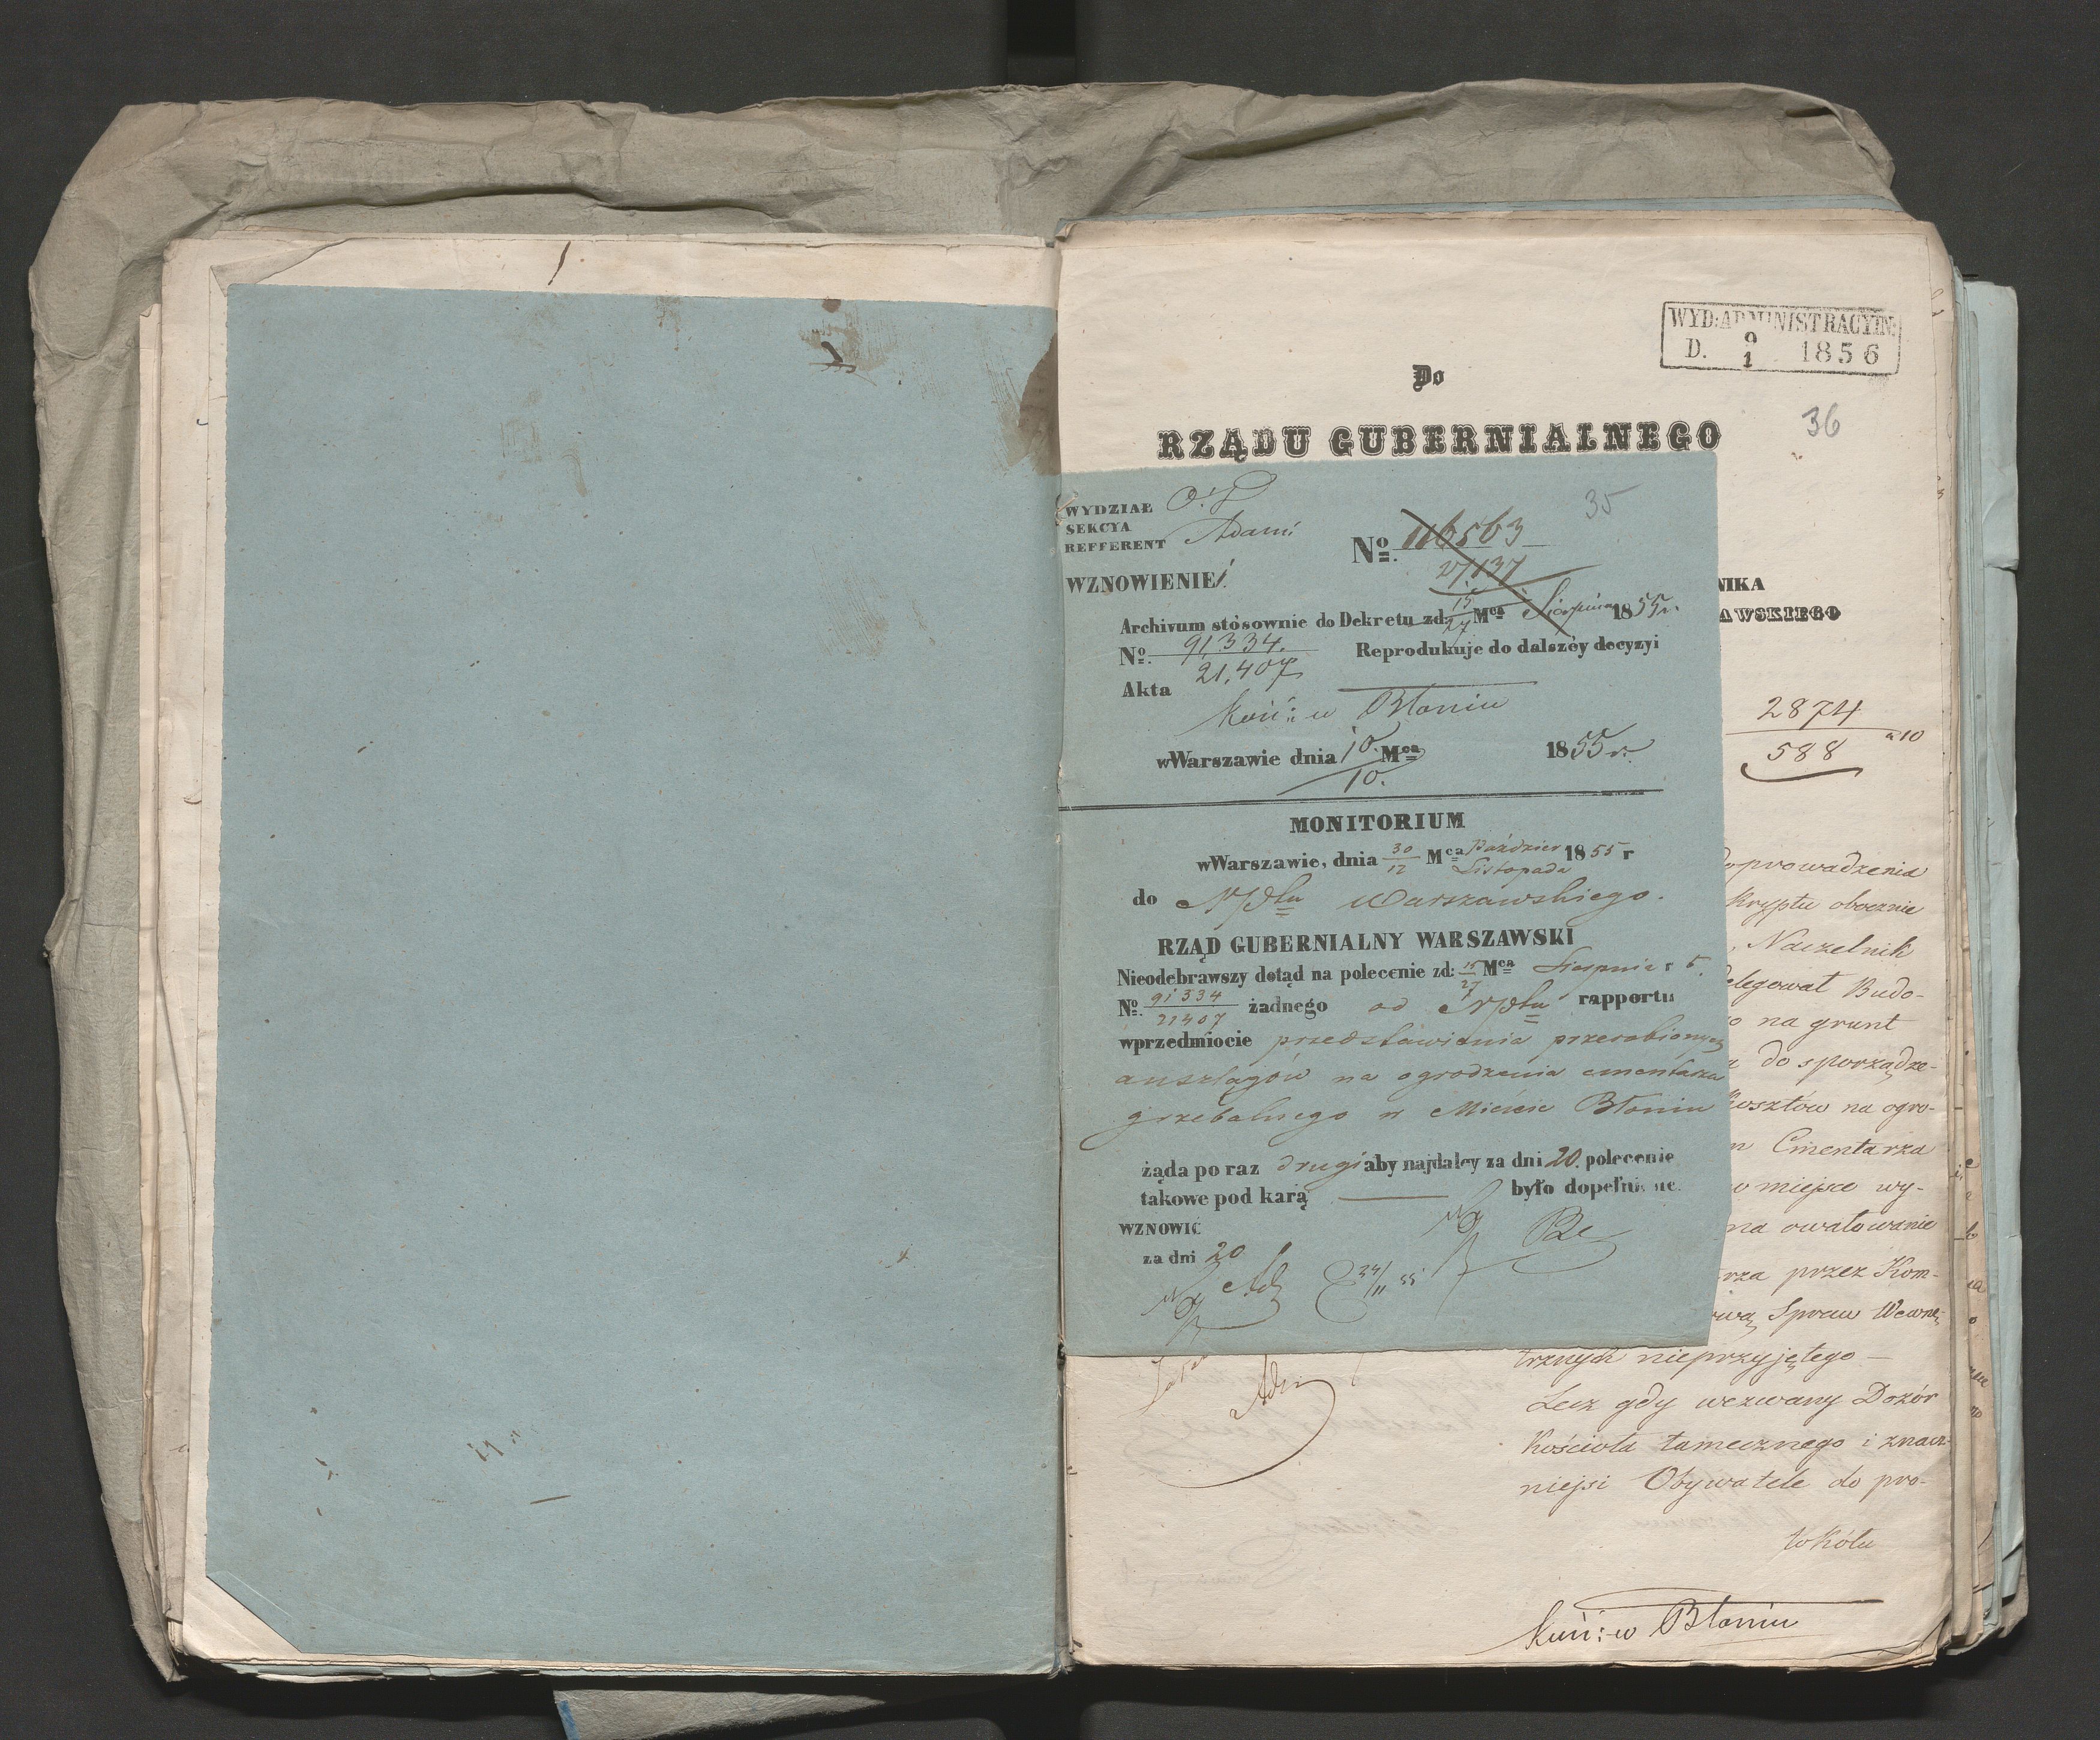 WYD: ADMINISTRACYIN:
D. 9/1 1856
Do
36
RZĄDU GUBERNIALNEGO
35
WYDZIAŁ
SEKCYA
REFFERENT Adami
WZNOWIENIE
No. 116563
27,137
Archivum stósownie do Dekretu zd: 15/27 Mca Sierpnia 1855 r.
No. 91,334.
21,407
Reprodukuje do dalszéy decyzyi
Akta
Kość: w Błoniu
w Warszawie dnia 10. Mca 1855 r.
10.
MONITORIUM
w Warszawie, dnia 30/12 Mca Paździer 1855 r
Listopada
do Npltu Warszawskiego.
RZĄD GUBERNIALNY WARSZAWSKI
Nieodebrawszy dotąd na polecenie zd: 15/27 Mca Sierpnia r b.
No. 91334/21407 żadnego od rapportu
wprzedmiocie przedstawienia przerobionych
anszlagów na ogrodzenia cmentarza
grzebalnego w Mieście Błoniu
żąda po raz drugi aby najdaléy za dni 20. polecenie
takowe pod karą było dopełnione.
WZNOWIĆ
za dni 20
24/11 55
NIKA
AWSKIEGO
2874
588
doprowadzenia
Kryptu obocznie
, Naczelnik
delegował Budo-
na grunt
do sporządze-
Kosztów na ogro-
Cmentarza
miejsce wy-
na owałowanie
rza przez Kom-
Spraw Wewnę-
trznych nieprzyjętego —
Lecz gdy wezwany Dozór
Kościoła tamecznego i znacz-
niejsi Obywatele do pro-
tokółu
Kość: w Błoniu